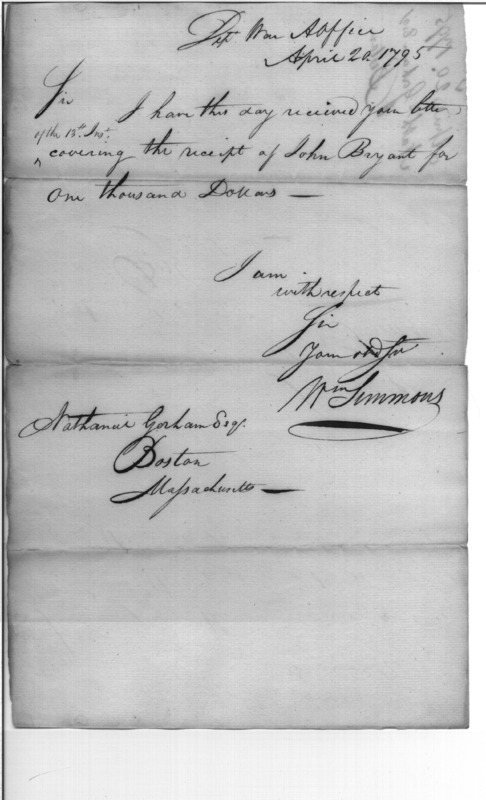 Dpt War AOffice
April 20. 1795
Sir
I have this day received your letter
of the 13th Inst.
^ covering the receipt of John Bryant for
one thousand Dollars —
I am
with respect
Sir
Your obd Sr
Wm Simmons
Nathaniel Gorham Esq.
Boston
Massachusetts —